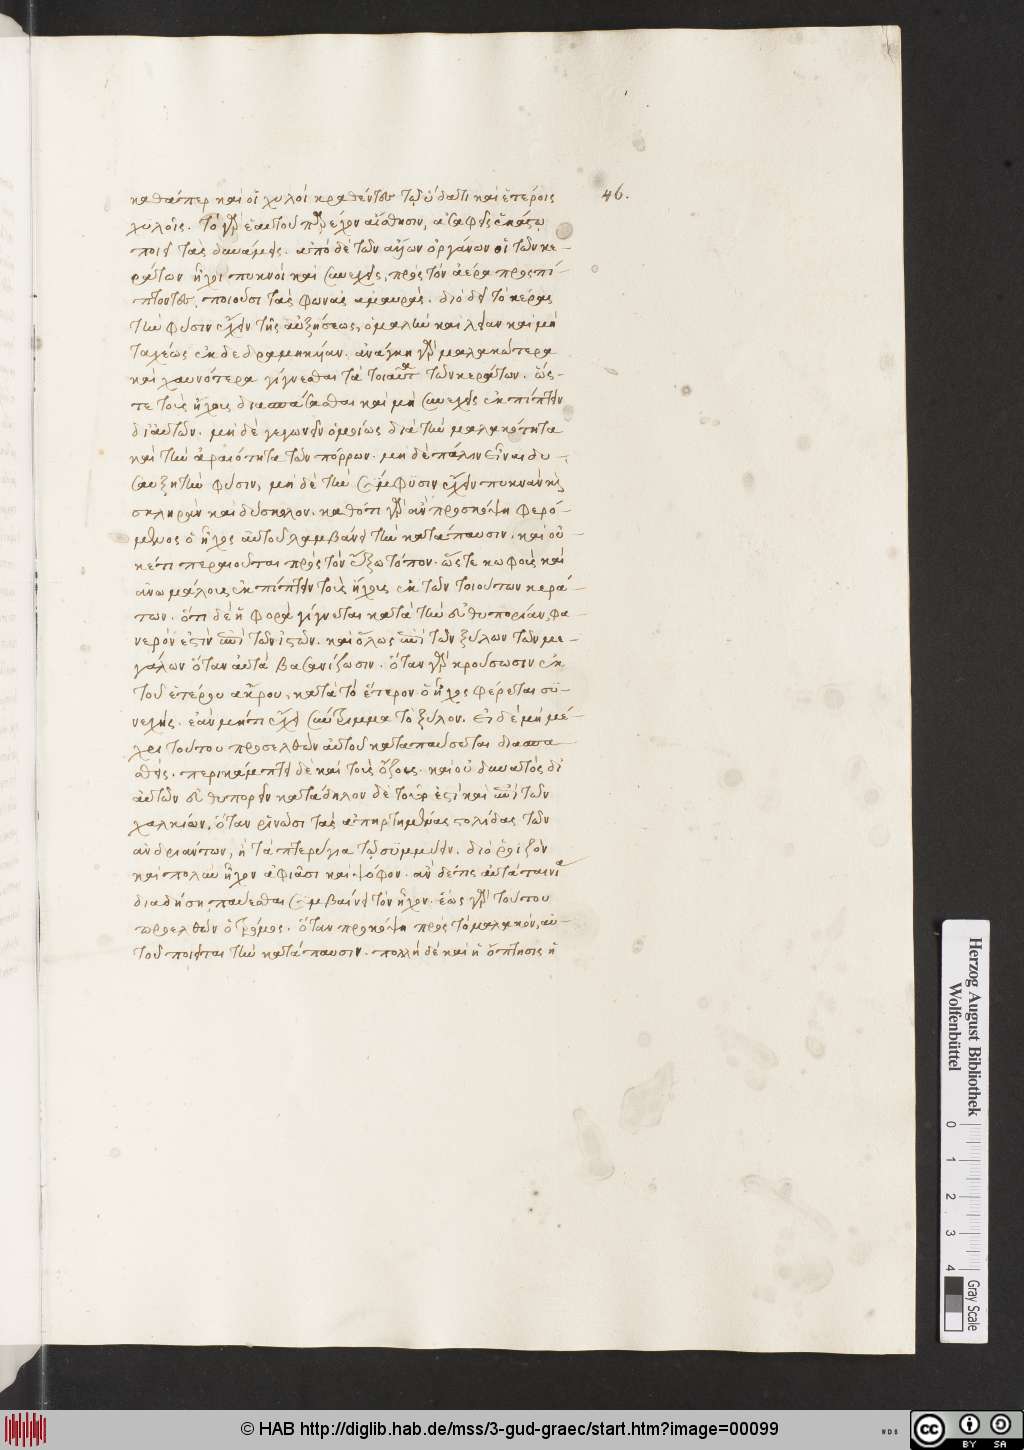 καθάπερ καὶ οἱ χυλοὶ κραθέντες τῷ ὕδατι καὶ ἑτέροις
χυλοῖς. τὸ γὰρ ἑαυτοῦ παρέχον αἴσθησιν, ἀσαφὲς ἑκάστῳ
ποιεῖ τὰς δυνάμεις. ἀπὸ δὲ τῶν ἄλλων ὀργάνων οἱ τῶν κε-
ράτων ἦχοι πυκνοὶ καὶ συνεχεῖς, πρὸς τὸν ἀέρα προσπί-
πτοντες, ποιοῦσι τὰς φωνὰς ἀμαυράς. διὸ δεῖ τὸ κέρας
τὴν φύσιν ἔχειν τῆς αὐξήσεως, ὁμαλὴν καὶ λείαν καὶ μὴ
ταχέως ἐκδεδραμηκυῖαν. ἀνάγκη γὰρ μαλακώτερα
καὶ χαυνότερα γίγνεσθαι τὰ τοιαῦτα τῶν κεράτων. ὥσ-
τε τοὺς ἤχους διασπᾶσθαι καὶ μὴ συνεχεῖς ἐκπίπτειν
δι αὐτῶν. μὴ δὲ γεγωνεῖν ὁμοίως διὰ τὴν μαλακότητα
καὶ τὴν ἀραιότητα τῶν πόρρων. μὴ δὲ πάλιν εἶναι δυ-
σαυξῆ τὴν φύσιν, μὴ δὲ τὴν σύμφυσιν ἔχειν πυκνὴν καὶ
σκληρὰν καὶ δύσκολον. καθότι γὰρ ἂν προσκόψῃ φερό-
μενος ὁ ἦχος αὐτοῦ λαμβάνει τὴν κατάπαυσιν. καὶ οὐ-
κέτι περαιοῦται πρὸς τὸν ἔξω τόπον. ὥστε κωφοὺς καὶ
ἀνωμάλους ἐκπίπτειν τοὺς ἤχους ἐκ τῶν τοιούτων κερά-
των. ὅτι δὲ ἡ φορὰ γίγνεται κατὰ τὴν εὐθυπορίαν, φα
νερόν ἐστιν ἐπὶ τῶν ἱστῶν. καὶ ὅλως ἐπὶ τῶν ξύλων τῶν με-
γάλων ὅταν αὐτὰ βασανίζωσιν. ὅταν γὰρ κρούσωσιν ἐκ
τοῦ ἑτέρου ἄκρου, κατὰ τὸ ἕτερον ὁ ἦχος φέρεται συ-
νεχής. ἐὰν μή τι ἔχῃ σύντριμμα τὸ ξύλον. εἰ δὲ μὴ μέ-
χρι τούτου προσελθὼν αὐτοῦ καταπαύσεται διασπα
σθείς. περικάμπτει δὲ καὶ τοὺς ὄζους. καὶ οὐ δυνατὸς δι
αὐτῶν εὐθυπορεῖν κατάδηλον δὲ τοῦτό ἐστι καὶ ἐπὶ τῶν
χαλκίων, ὅταν ῥινῶσι τὰς ἀπηρτημένας στολίδας τῶν
ἀνδριάντων, ἢ τὰ πτερύγια τῷ συμμύειν. διὸ ῥοῖζον
καὶ πολὺν ἦχον ἀφιᾶσι καὶ ψόφον. ἂν δέ τις αὐτὰ ταινίᾳ
διαδήσῃ, παύεσθαι συμβαίνει τὸν ἦχον. ἕως γὰρ τούτου
προελθὼν ὁ τρόμος. ὅταν προσκόψῃ πρὸς τὸ μαλακόν, αὐ-
τοῦ ποιεῖται τὴν κατάπαυσιν. πολλὴ δὲ καὶ ἡ ὄπτησις ἡ
46.
Herzog August Bibliothek
Wolfenbüttel
0 1 2 3 4
Gray Scale
© HAB http://diglib.hab.de/mss/3-gud-graec/start.htm?image=00099
WDB
cc BY SA